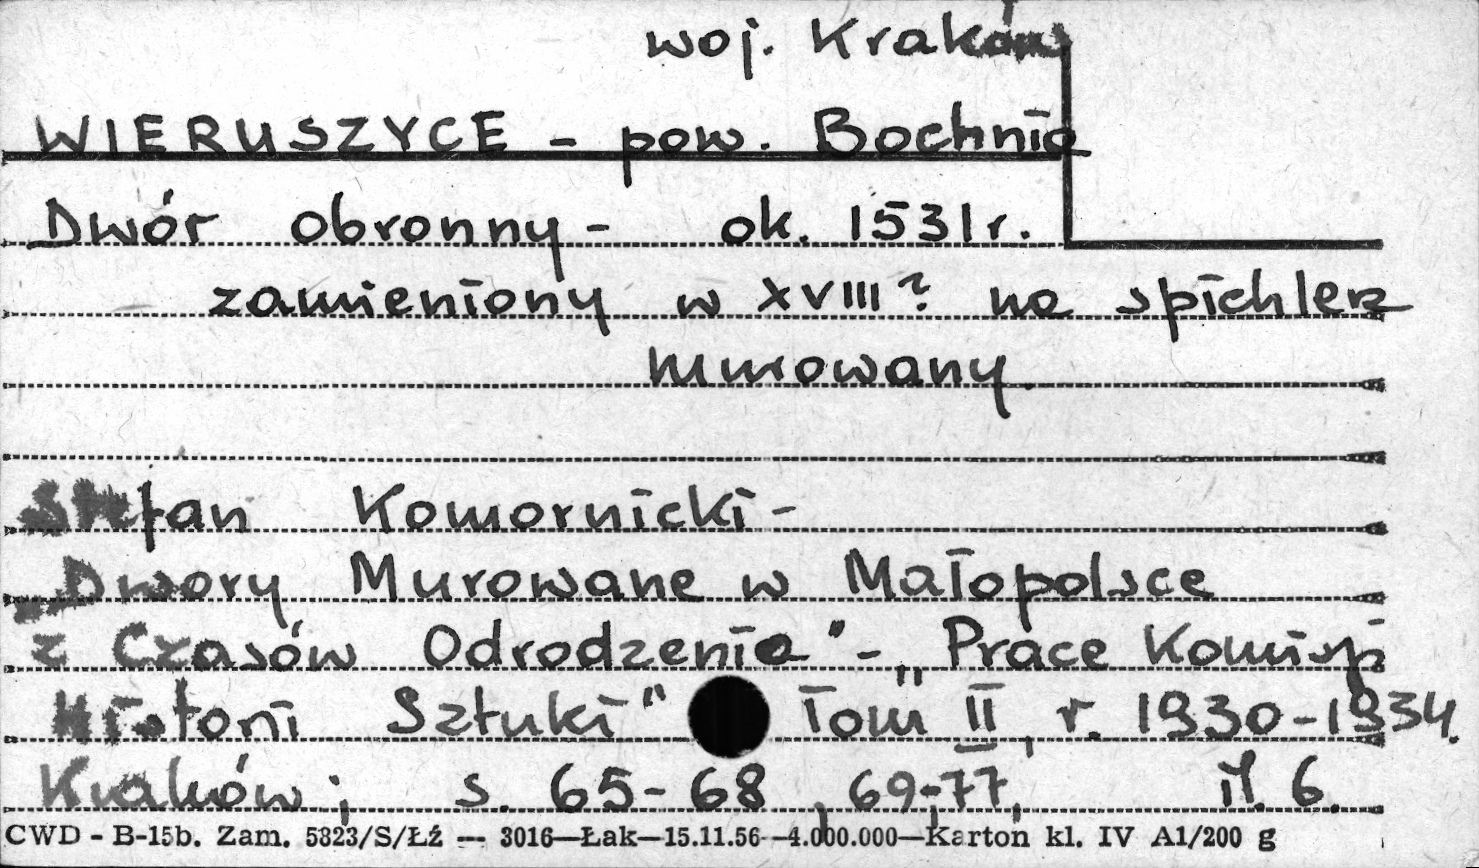 woj. Kraków
WIERUSZYCE - pow. Bochnia
Dwór obronny - ok. 1531 r.
zamieniony w XVIII? na spichlerz
murowany.
Stefan Komornicki -
„Dwory Murowane w Małopolsce
z Czasów Odrodzenia" - „Prace Komisji
Historii Sztuki" Tom II, r. 1930-1934.
Kraków; s. 65-68, 69-77, ił. 6.
CWD - B-15b. Zam. 5823/S/ŁŹ — 3016—Łak—15.11.56—4.000.000—Karton kl. IV A1/200 g